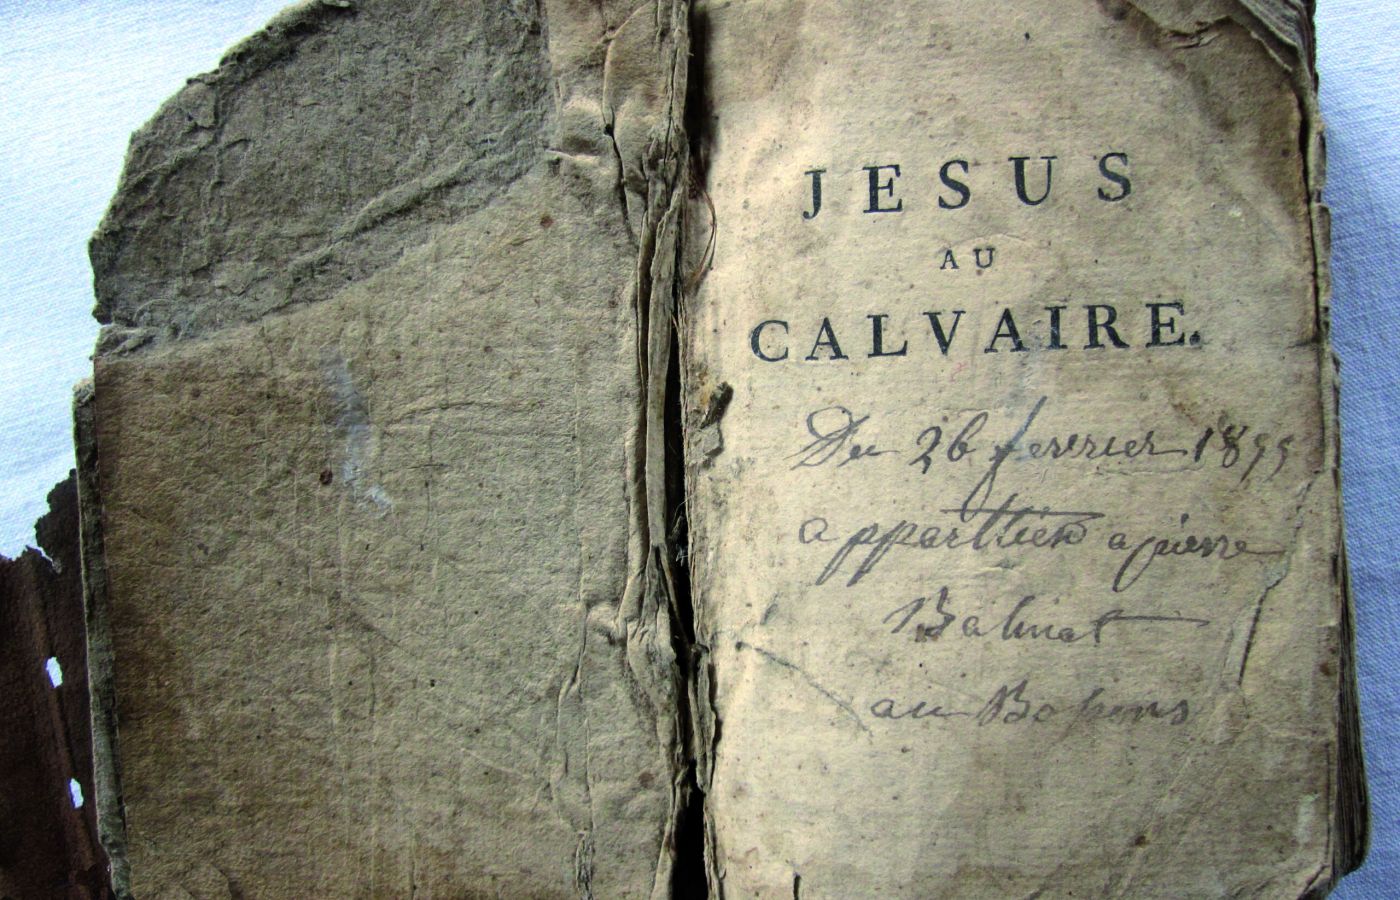 JESUS
AU
CALVAIRE.
Du 26 fevrier 1899
apparttien a pierre
Balmat
au Bossons